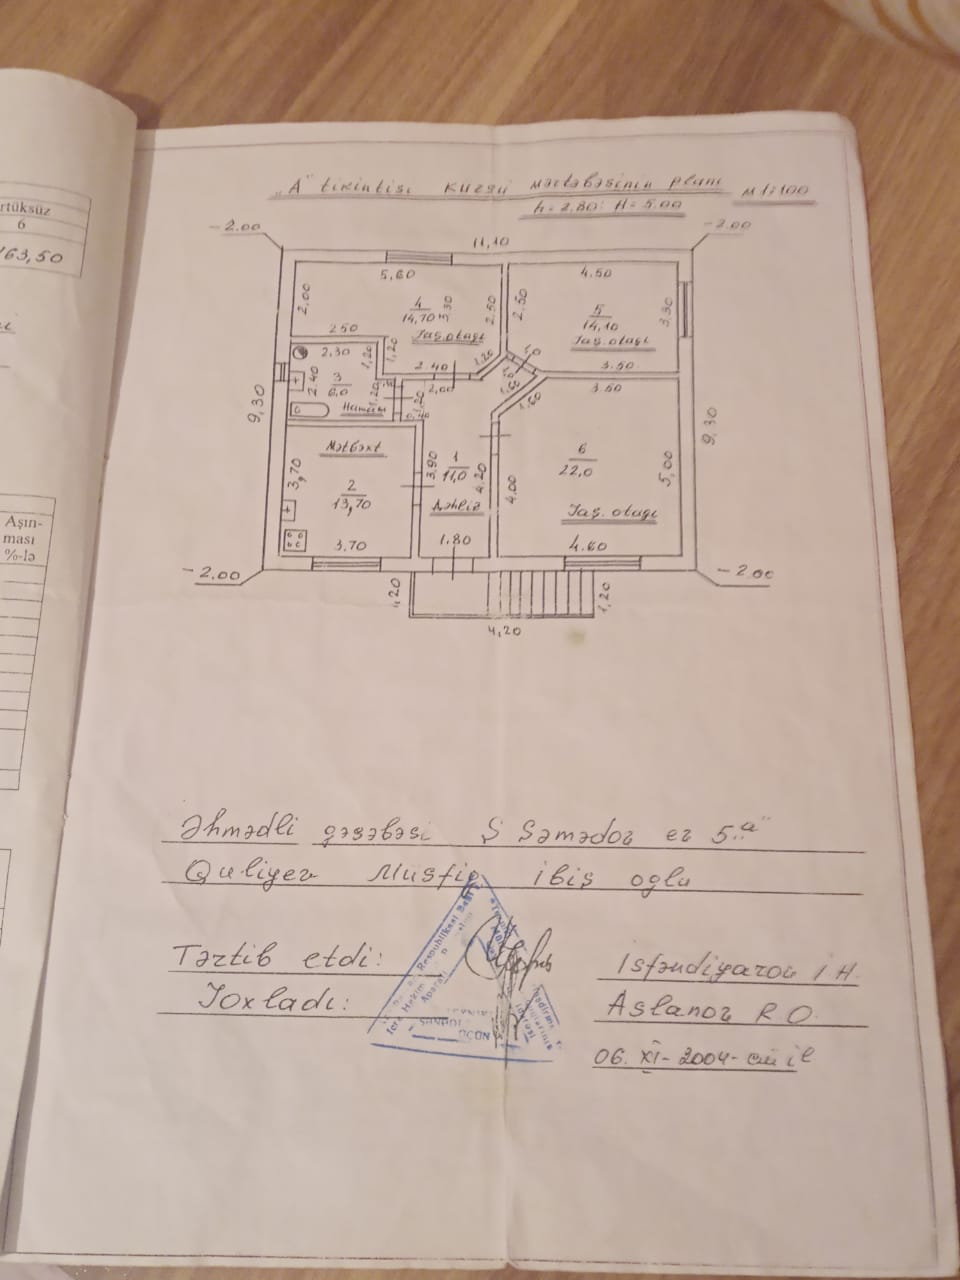 rtüksüz
6
163,50
Aşın-
ması
%-lə
"A" tikintisi kürsü mərtəbəsinin planı M 1:100
h=2.80: H=5.00
-2.00
-2.00
11,10
5,60
4.50
2,00
4
14,70
3,30
2.50
2,50
5
14,10
3,30
Yaş.otağı
Yaş.otağı
250
2,30
1,20
1,20
2.40
1,20
3.50
2.40
3
6,0
1.20
2,00
1,20
1.60
3.60
Hamam
9,30
9,30
Mətbəxt
3,70
2
13,70
3,90
1
11,0
4.20
4,00
6
22,0
5,00
Dəhliz
Yaş.otağı
3.70
1.80
4.60
-2,00
-2.00
1,20
1,20
4,20
Əhmədli qəsəbəsi Ş Səmədov ev 5"a"
Quliyev Müşfiq İbiş oğlu
Tərtib etdi: İsfəndiyarov İ.H.
Yoxladı: Aslanov R.O.
06. XI-2004-cü il
Respublikası
İcra Hakim
Aparatı